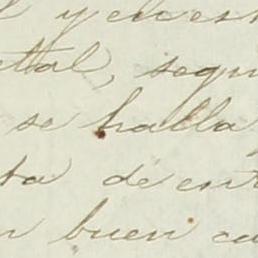 y en es
tal, segu
se halla
ta de ent
n buen ca